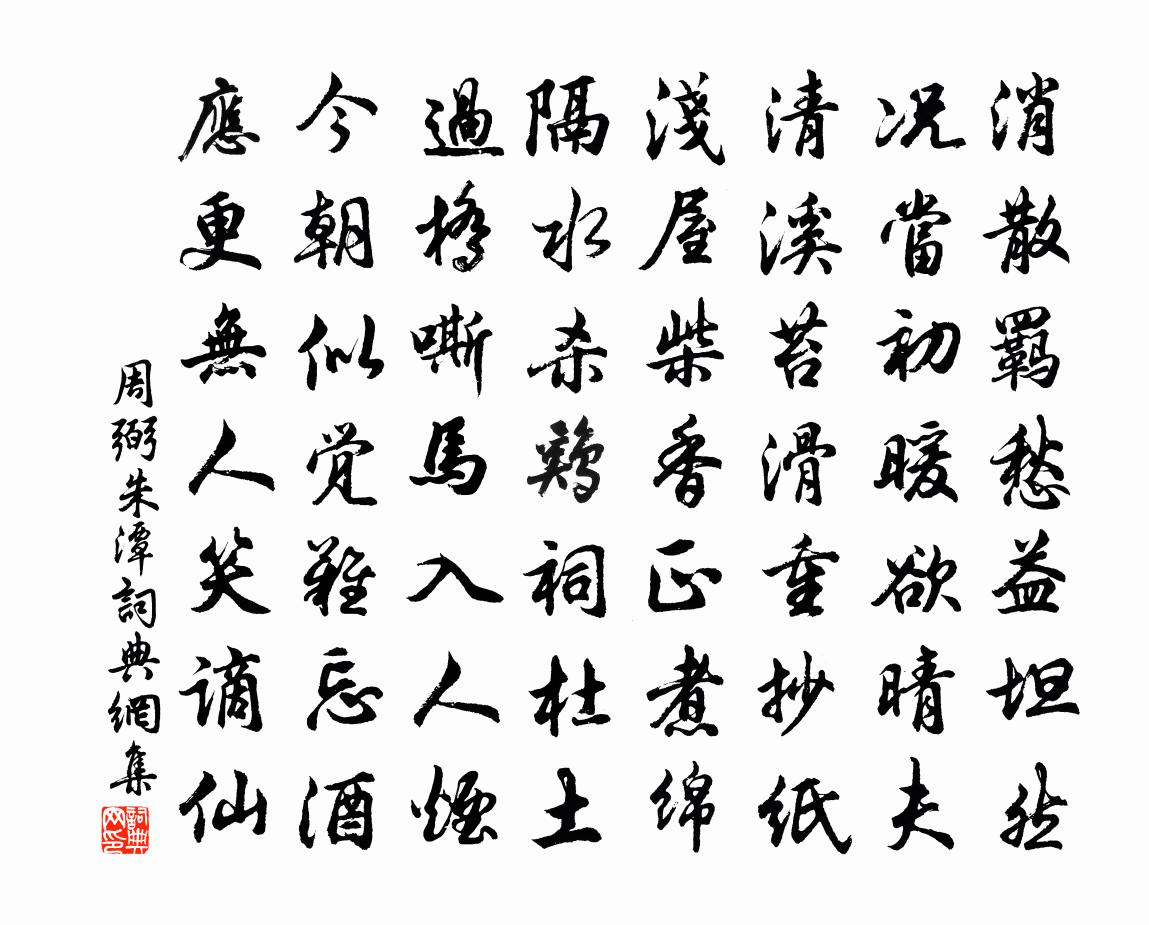 消散羈愁益坦然
况當初暖欲晴天
清溪苔滑重抄紙
淺屋柴香正煮綿
隔水杀鷄祠杜土
過橋嘶馬入人煙
今朝似覚難忘酒
應更無人笑謫仙
周弼朱潭詞典網集
詞典网印